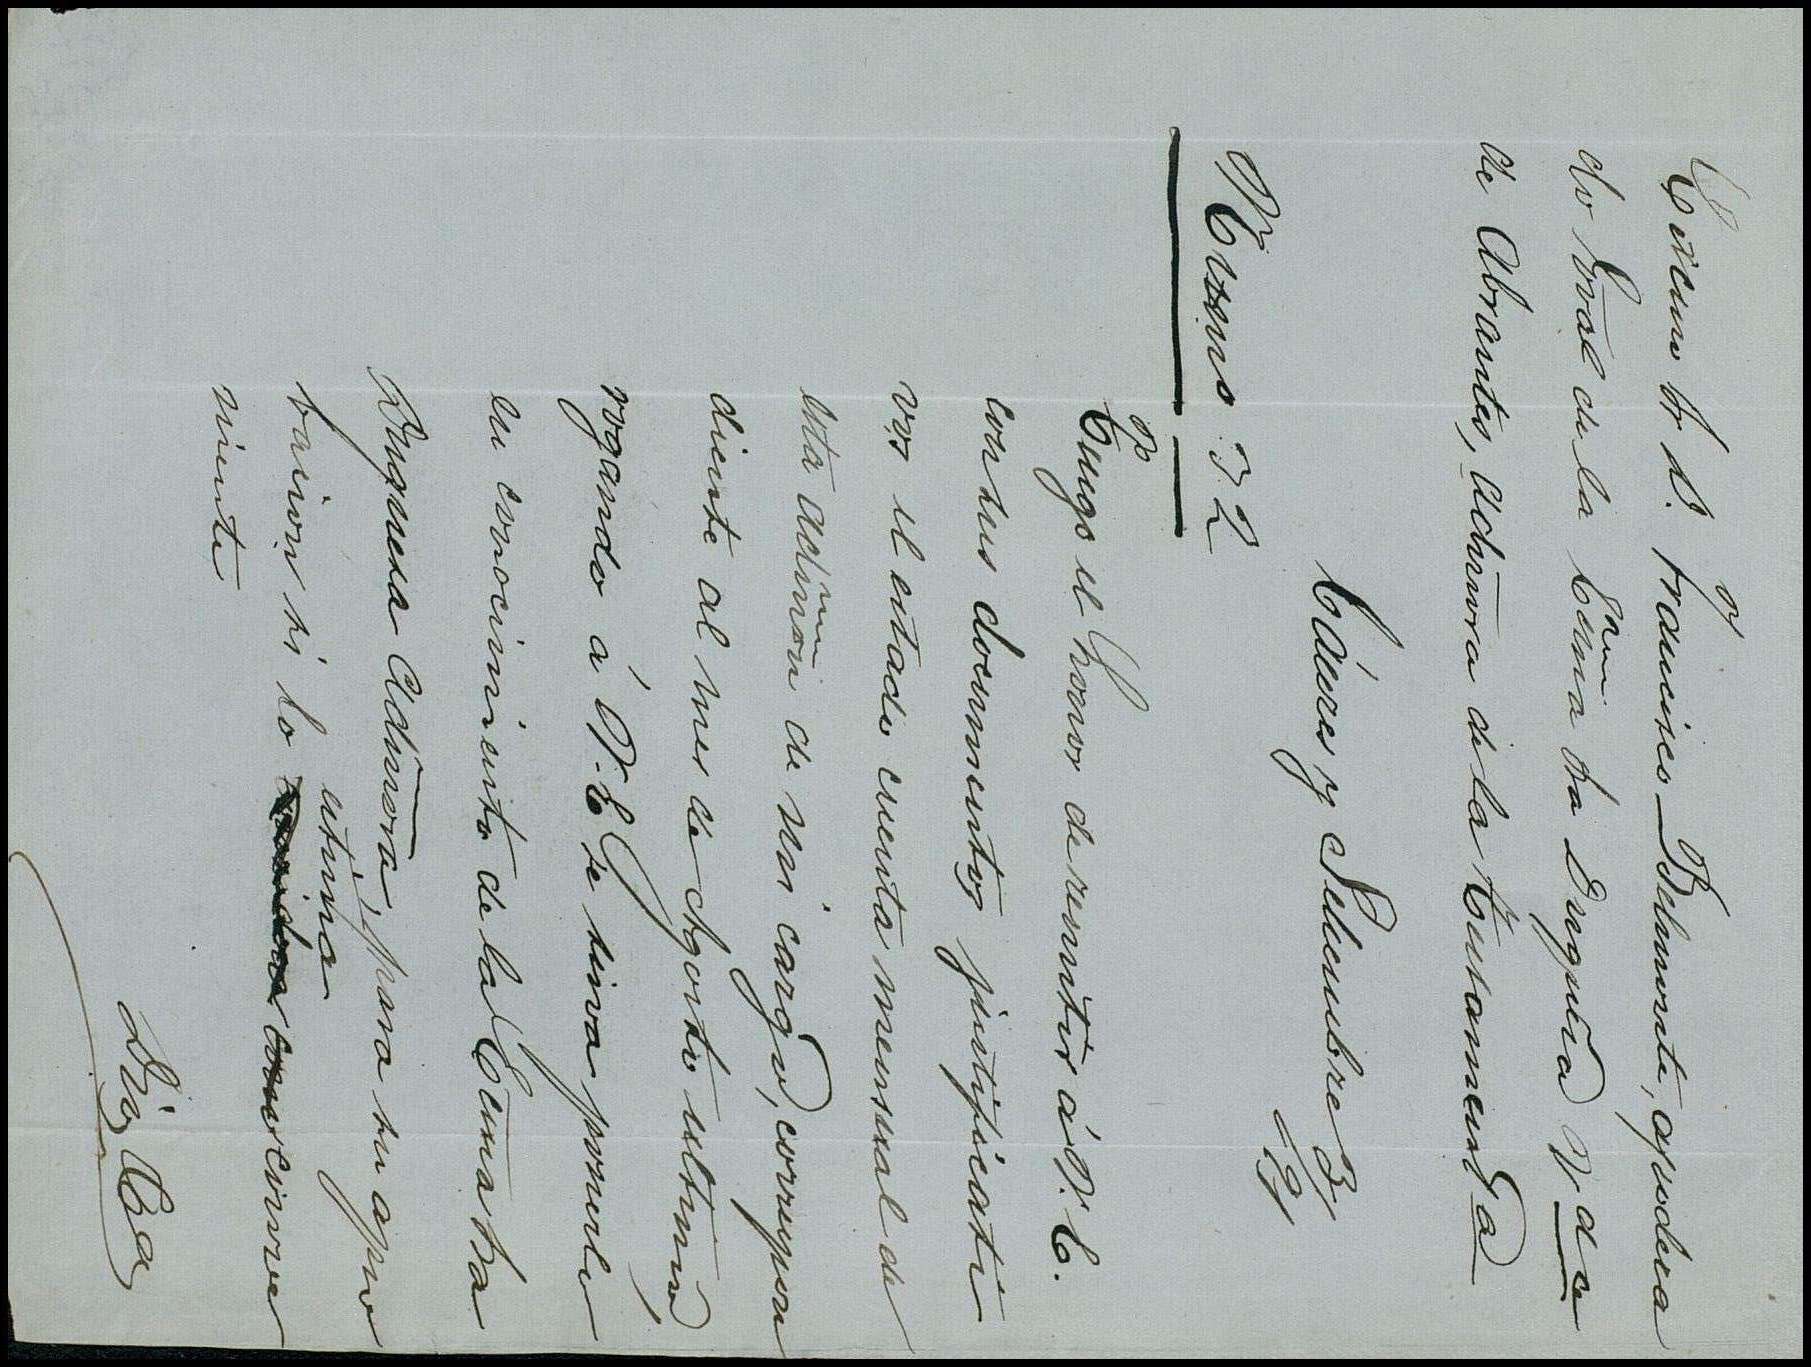 Excmo Sr D. Francisco Belmonte, apodera
do Gral de la Excma Sra Duquesa V da
de Abrantes, Admora de la Testament a
Cáceres y Setiembre 3/
Número 32
Tengo el honor de remitir á V. E.
con sus documentos justificati
vos el estado cuenta mensual de
esta admon de mi cargo, correspon
diente al mes de Agosto ultimo,
rogando á V. E. se sirva ponerlo
en conocimiento de la Excma Sra
Duquesa Admora, para su apro
estima
bacion si lo conve
niente